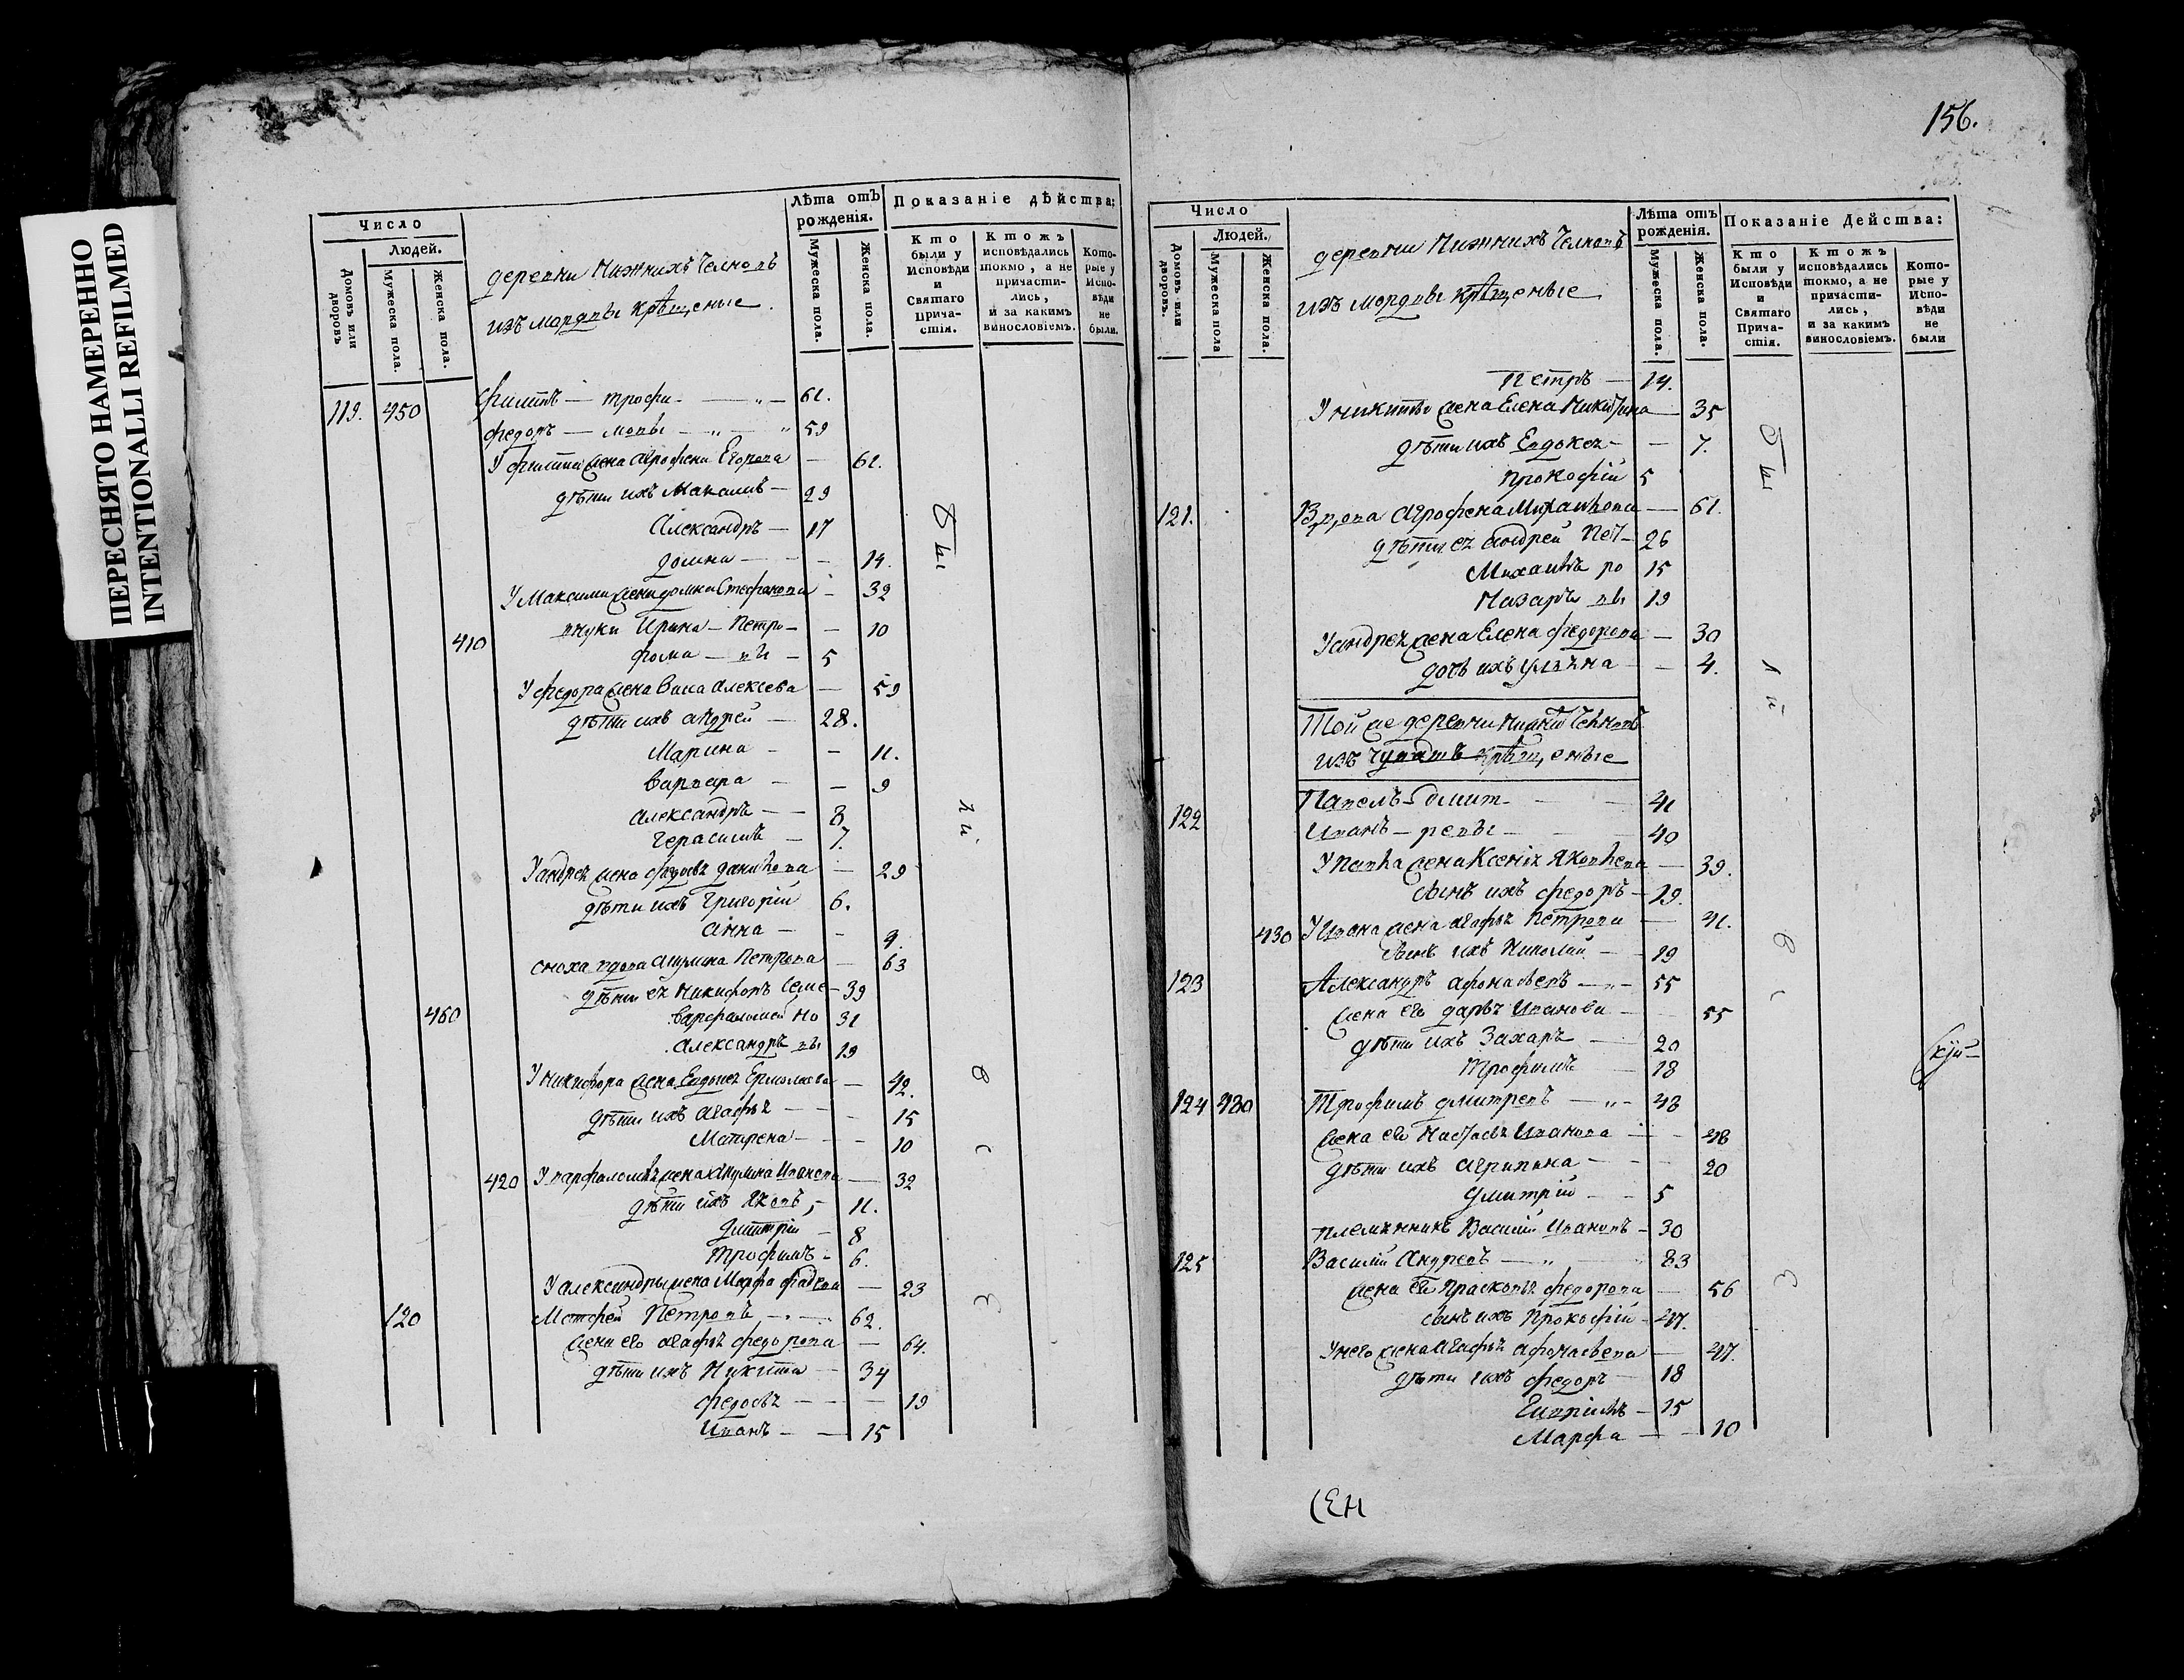 ПЕРЕСНЯТО НАМЕРЕННО
INTENTIONALLI REFILMED
Число
Людей.
Домовъ или дворовъ
Мужеска пола.
Женска пола.
деревни Нижнихъ Челновъ
изъ мордвы крѣщеные
Лѣта отъ рожденія.
Мужеска пола.
Женска пола.
Показаніе дѣйства:
Кто были у Исповѣди и Святаго Прича-стія.
Ктожъ исповѣдались токмо, а не причасти-лись, и за какимъ винословіемъ.
Кото-рые у Испо-вѣди не были.
119. 450 Филипъ — трофи- — 61.
Федоръ — мовы — 59
У филипа жена агрофена Егорова — 61.
дѣти ихъ Максимъ — 29
Александръ — 17
домна — 14.
У Максима жена домна Стефанова — 32
410 внуки Ирина — Петро- — 10
фома — вы — 5
У федора жена Васа алексева — 59
дѣти ихъ андрей — 28.
Марина — 11.
варвара — 9
александръ — 8
герасимъ — 7.
У андрея жена федосья данилова — 29
дѣти ихъ Григорій 6.
анна — 4.
сноха вдова акулина Петрова — 63
дѣти ея Никифоръ Семе- 39
460 варфаломей но 31
александръ вы 19
У никифора жена Евдокея Ермолаева — 42.
дѣти ихъ агафья — 15
Матрена — 10
420 У варфаломея жена акулина Иванова — 32
дѣти ихъ Яковъ, 11.
дмитрій — 8
трофимъ — 6.
У александры жена Марфа фадева — 23
120 Матфей Петровъ — 62.
жена его агафья федорова — 64.
дѣти ихъ Никита — 34
федосья — 19
Иванъ — 15
156.
Число
Людей.
Домовъ или дворовъ.
Мужеска пола
Женска пола.
деревни Нижнихъ Челновъ
изъ мордвы крѣщеные
Лѣта отъ рожденія.
Мужеска пола.
Женска пола.
Показаніе Действа:
Кто были у Исповѣди и Святаго Прича-стія.
Ктожъ исповѣдались токмо, а не причасти-лись, и за какимъ винословіемъ.
Кото-рые у Испо-вѣди не были
Петръ — 14.
У никиты жена Елена Никитина — 35
дѣти ихъ Евдокея — 7.
прокофій 5
121. Вдова агрофена Михаилова — 61.
дѣти ея андрей Пет- 26
Михаилъ ро 15
Назаръ вы 19
У андрея жена Елена федорова — 30
дочь ихъ ульяна — 4.
Той же деревни нижних Челновъ
изъ чувашъ крѣщеные
122 Павелъ — дмит- — 41
Иванъ — ревы — 40
У павла жена Ксенія Яковлева — 39.
сынъ ихъ федоръ — 19.
430 У Ивана жена агафья Петрова — 41.
сынъ ихъ Николай — 19
123 Александръ афонасьевъ — 55
жена его дарья Иванова — 55
дѣти ихъ Захаръ — 20
Трофимъ — 18
124 480 Трофимъ дмитревъ — 48
жена его Настасья Иванова — 48
дѣти ихъ агрипина — 20
дмитрій — 5
племянникъ Василій Ивановъ — 30
125 Василій Андревъ — 83
жена его Прасковья федорова — 56
сынъ ихъ Прокофій — 47.
У него жена агафья афонасьева — 47.
дѣти ихъ федоръ — 18
Гавріилъ — 15
Марфа — 10